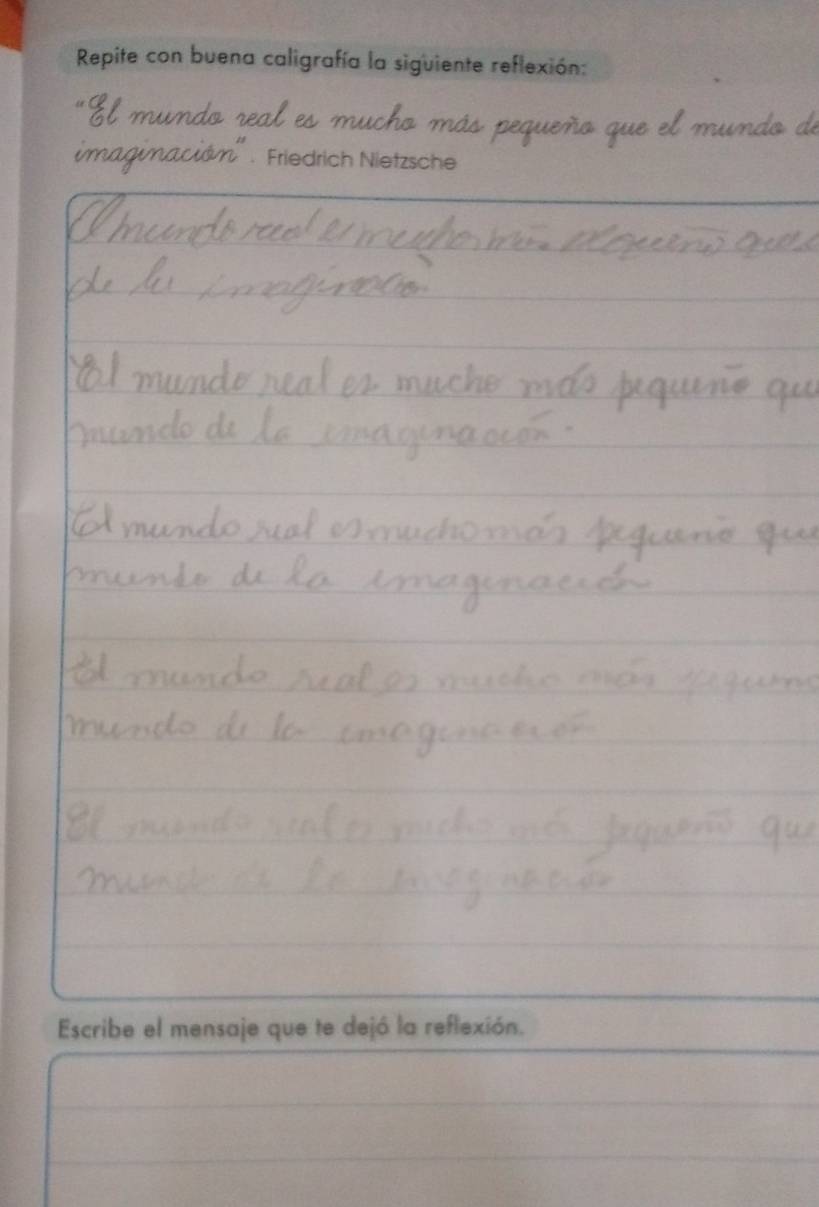 Repite con buena caligrafía la siguiente reflexión:
"El mundo real es mucho más pequeño que el mundo de
imaginación". Friedrich Nietzsche
El mundo real es mucho más pequeño que
de la imaginación
El mundo real es mucho más pequeño que
mundo de la imaginación.
El mundo real es mucho más pequeño que
mundo de la imaginación
El mundo real es mucho más pequeño
mundo de la imaginación
El mundo real es mucho más pequeño que
mundo de la imaginación
Escribe el mensaje que te dejó la reflexión.